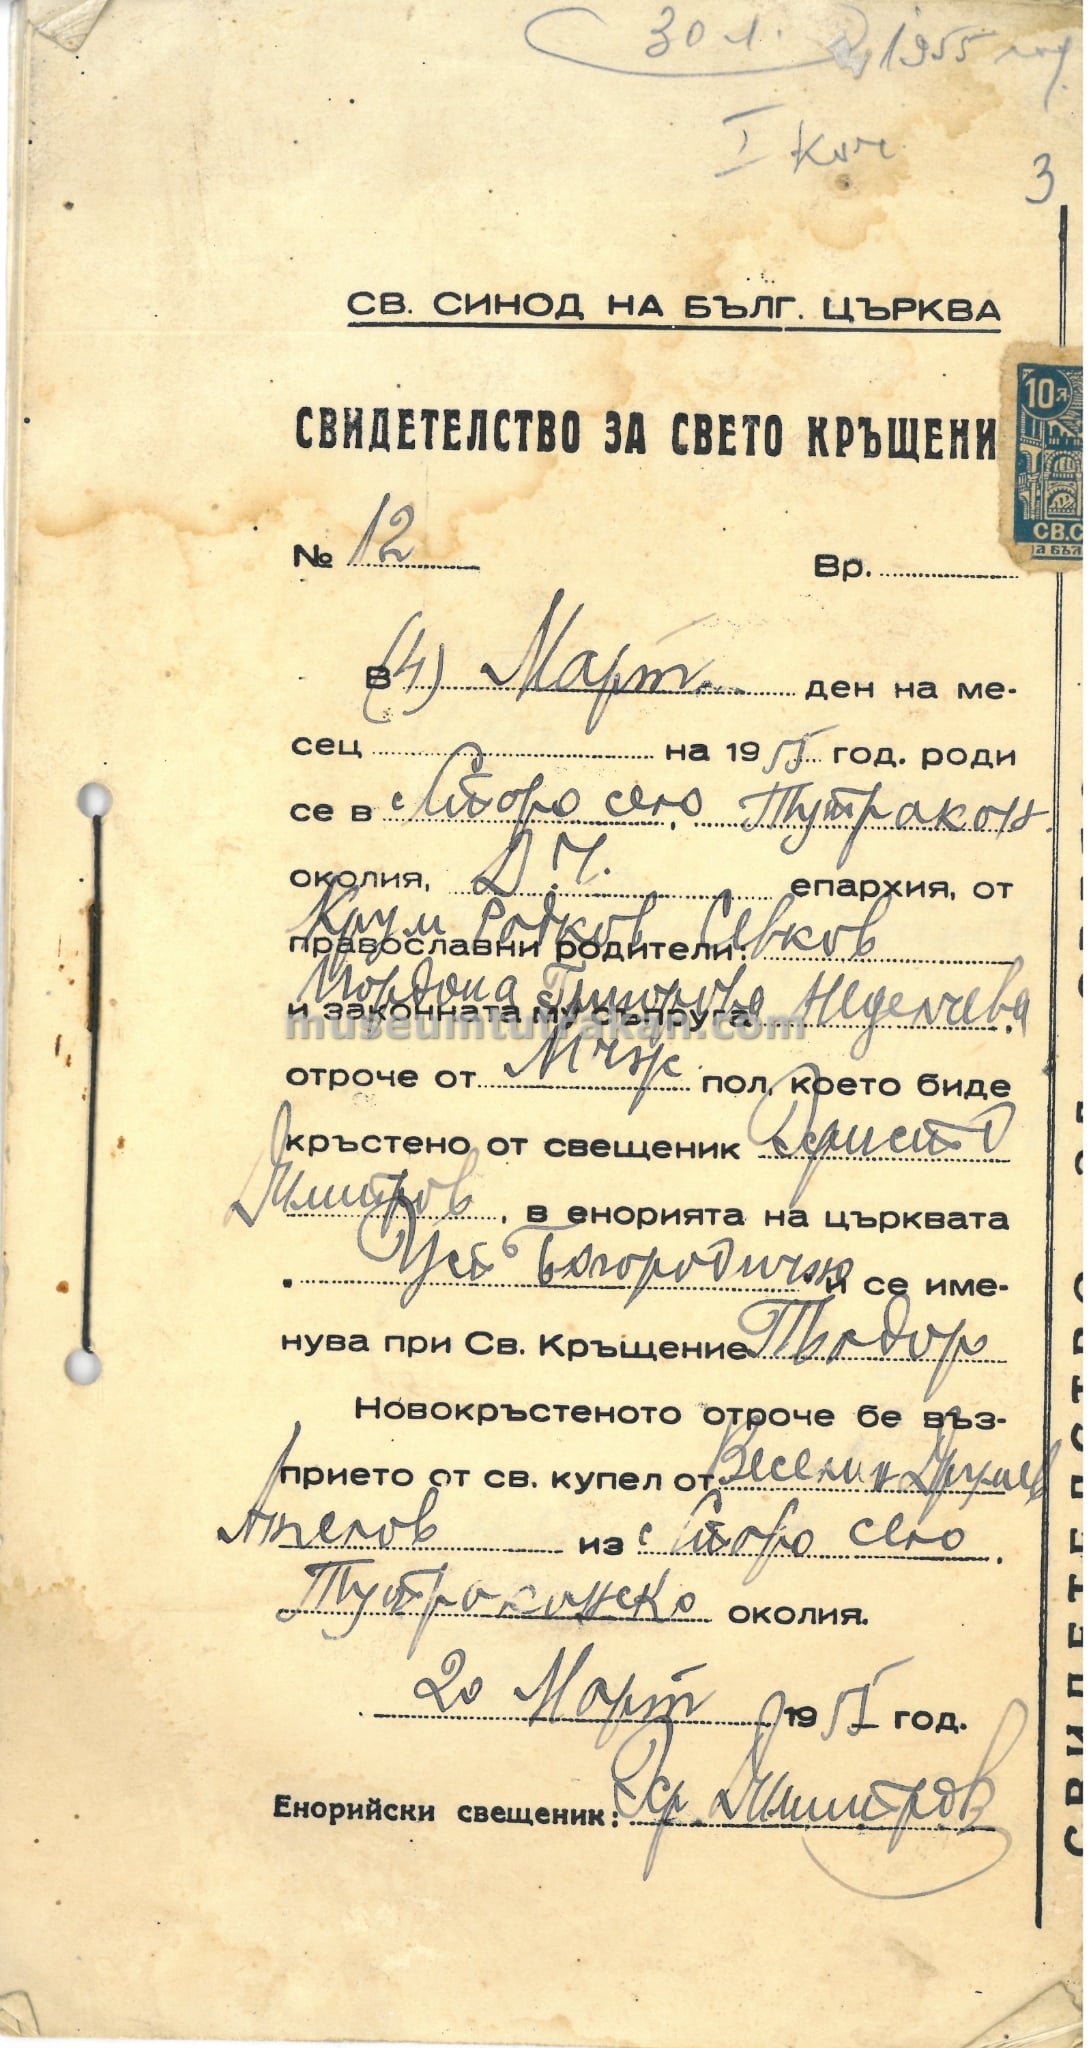 30 л. 1955 год.
I
3
СВ. СИНОД НА БЪЛГ. ЦЪРКВА
10 л.
СВИДЕТЕЛСТВО ЗА СВЕТО КРЪЩЕНИ
СВ.С
НА БЪЛ
№ 12 Вр.
В (4) Март ден на ме-
сец на 1955 год. роди
се в с. Старо село, Тутракан.
околия, Д. Ч. епархия, от
православни родители: Крум Савков
и законната му съпруга Йордана Григорова Неделчева
museumtutrakan.com
отроче от Мъж. пол, което биде
кръстено от свещеник Христо
Димитров, в енорията на църквата
„Усп. Богородично и се име-
нува при Св. Кръщение Тодор
Новокръстеното отроче бе въз-
прието от св. купел от Веселин
Ангелов из с. Старо село.
Тутраканско околия.
20 Март 1955 год.
Енорийски свещеник: Хр. Димитров